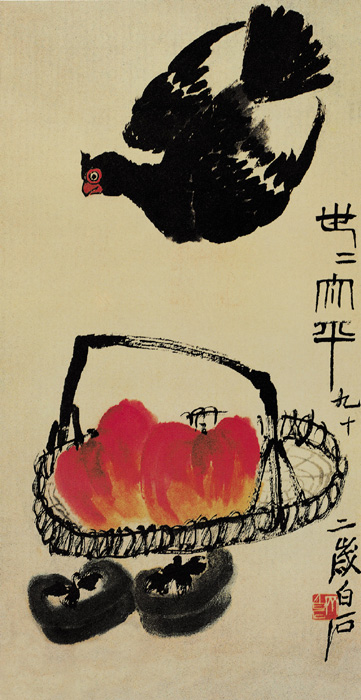 世二太平九十二歲白石